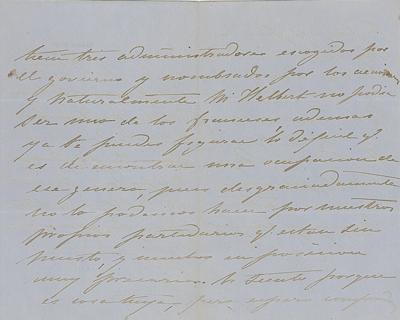 tiene tres administradores escogidos por
el gobierno y nombrados por los
y naturalmente Mr Halbert no podia
ser uno de los franceses ademas
ya te puedes figurar lo dificil q.
es de encontrar una ocupacion de
ese genero, pues desgraciadamente
no lo podemos hacer por nuestros
propios partidarios q. estan sin
puesto, y muchos en posicion
muy precaria. lo siento porque
es cosa tuya, pero espero